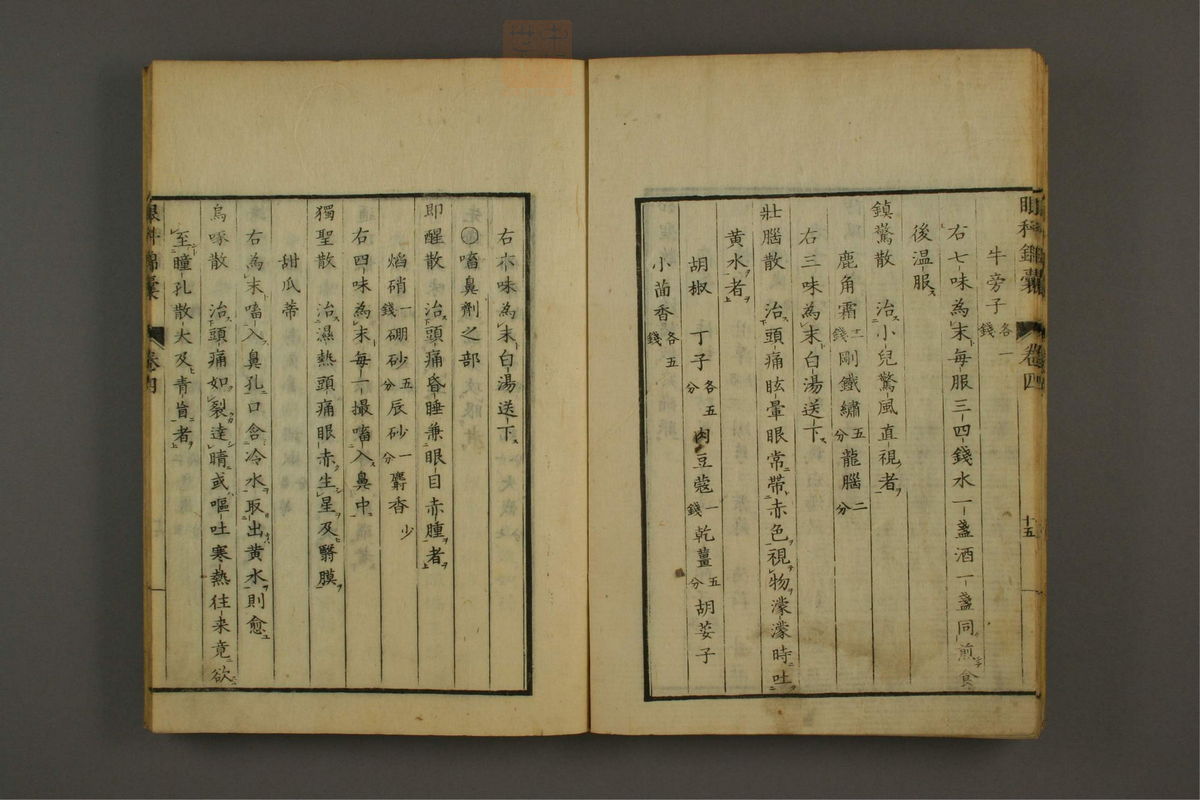 眼科錦囊 卷四 十五
牛旁子各一錢
右七味為末每服三四錢水一盞酒一盞同煎食
後温服
鎮驚散 治小兒驚風直視者
鹿角霜二錢剛鐵繡五分龍腦二分
右三味為末白湯送下
壯腦散 治頭痛眩暈眼常帶赤色視物濛濛時吐
黄水者
胡椒 丁子各五分肉豆蔻一錢乾薑五分胡荽子
小茴香各五錢
右木味為末白湯送下
◯嗜鼻劑之部
即醒散 治頭痛昏睡兼眼目赤腫者
焰硝一錢硼砂五分辰砂一分麝香少
右四味為末每一撮嗜入鼻中
獨聖散 治濕熱頭痛眼赤生星及翳膜
甜瓜蒂
右為末嗜入鼻孔口含冷水取出黄水則愈
烏啄散 治頭痛如裂達睛或嘔吐寒熱往来竟欲
至瞳孔散大及青盲者
眼科錦囊 卷四